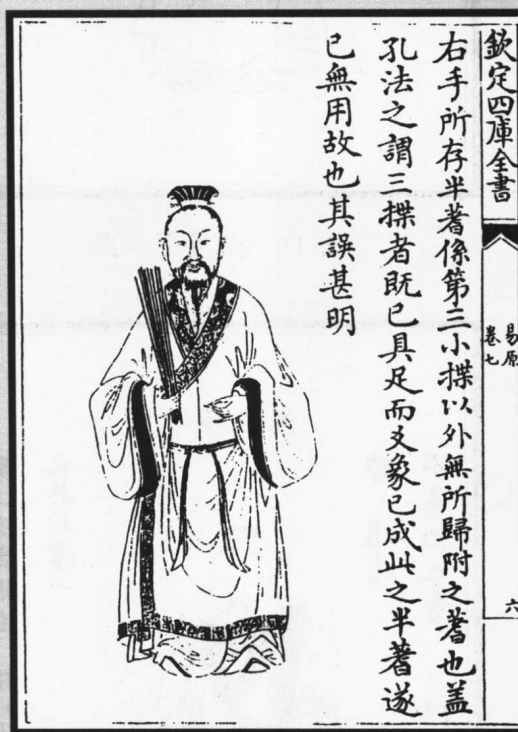 欽定四庫全書
易原
卷七
六
右手所存半蓍係第三小揲以外無所歸附之蓍也盖
孔法之謂三揲者既已具足而爻象已成此之半蓍遂
已無用故也其誤甚明